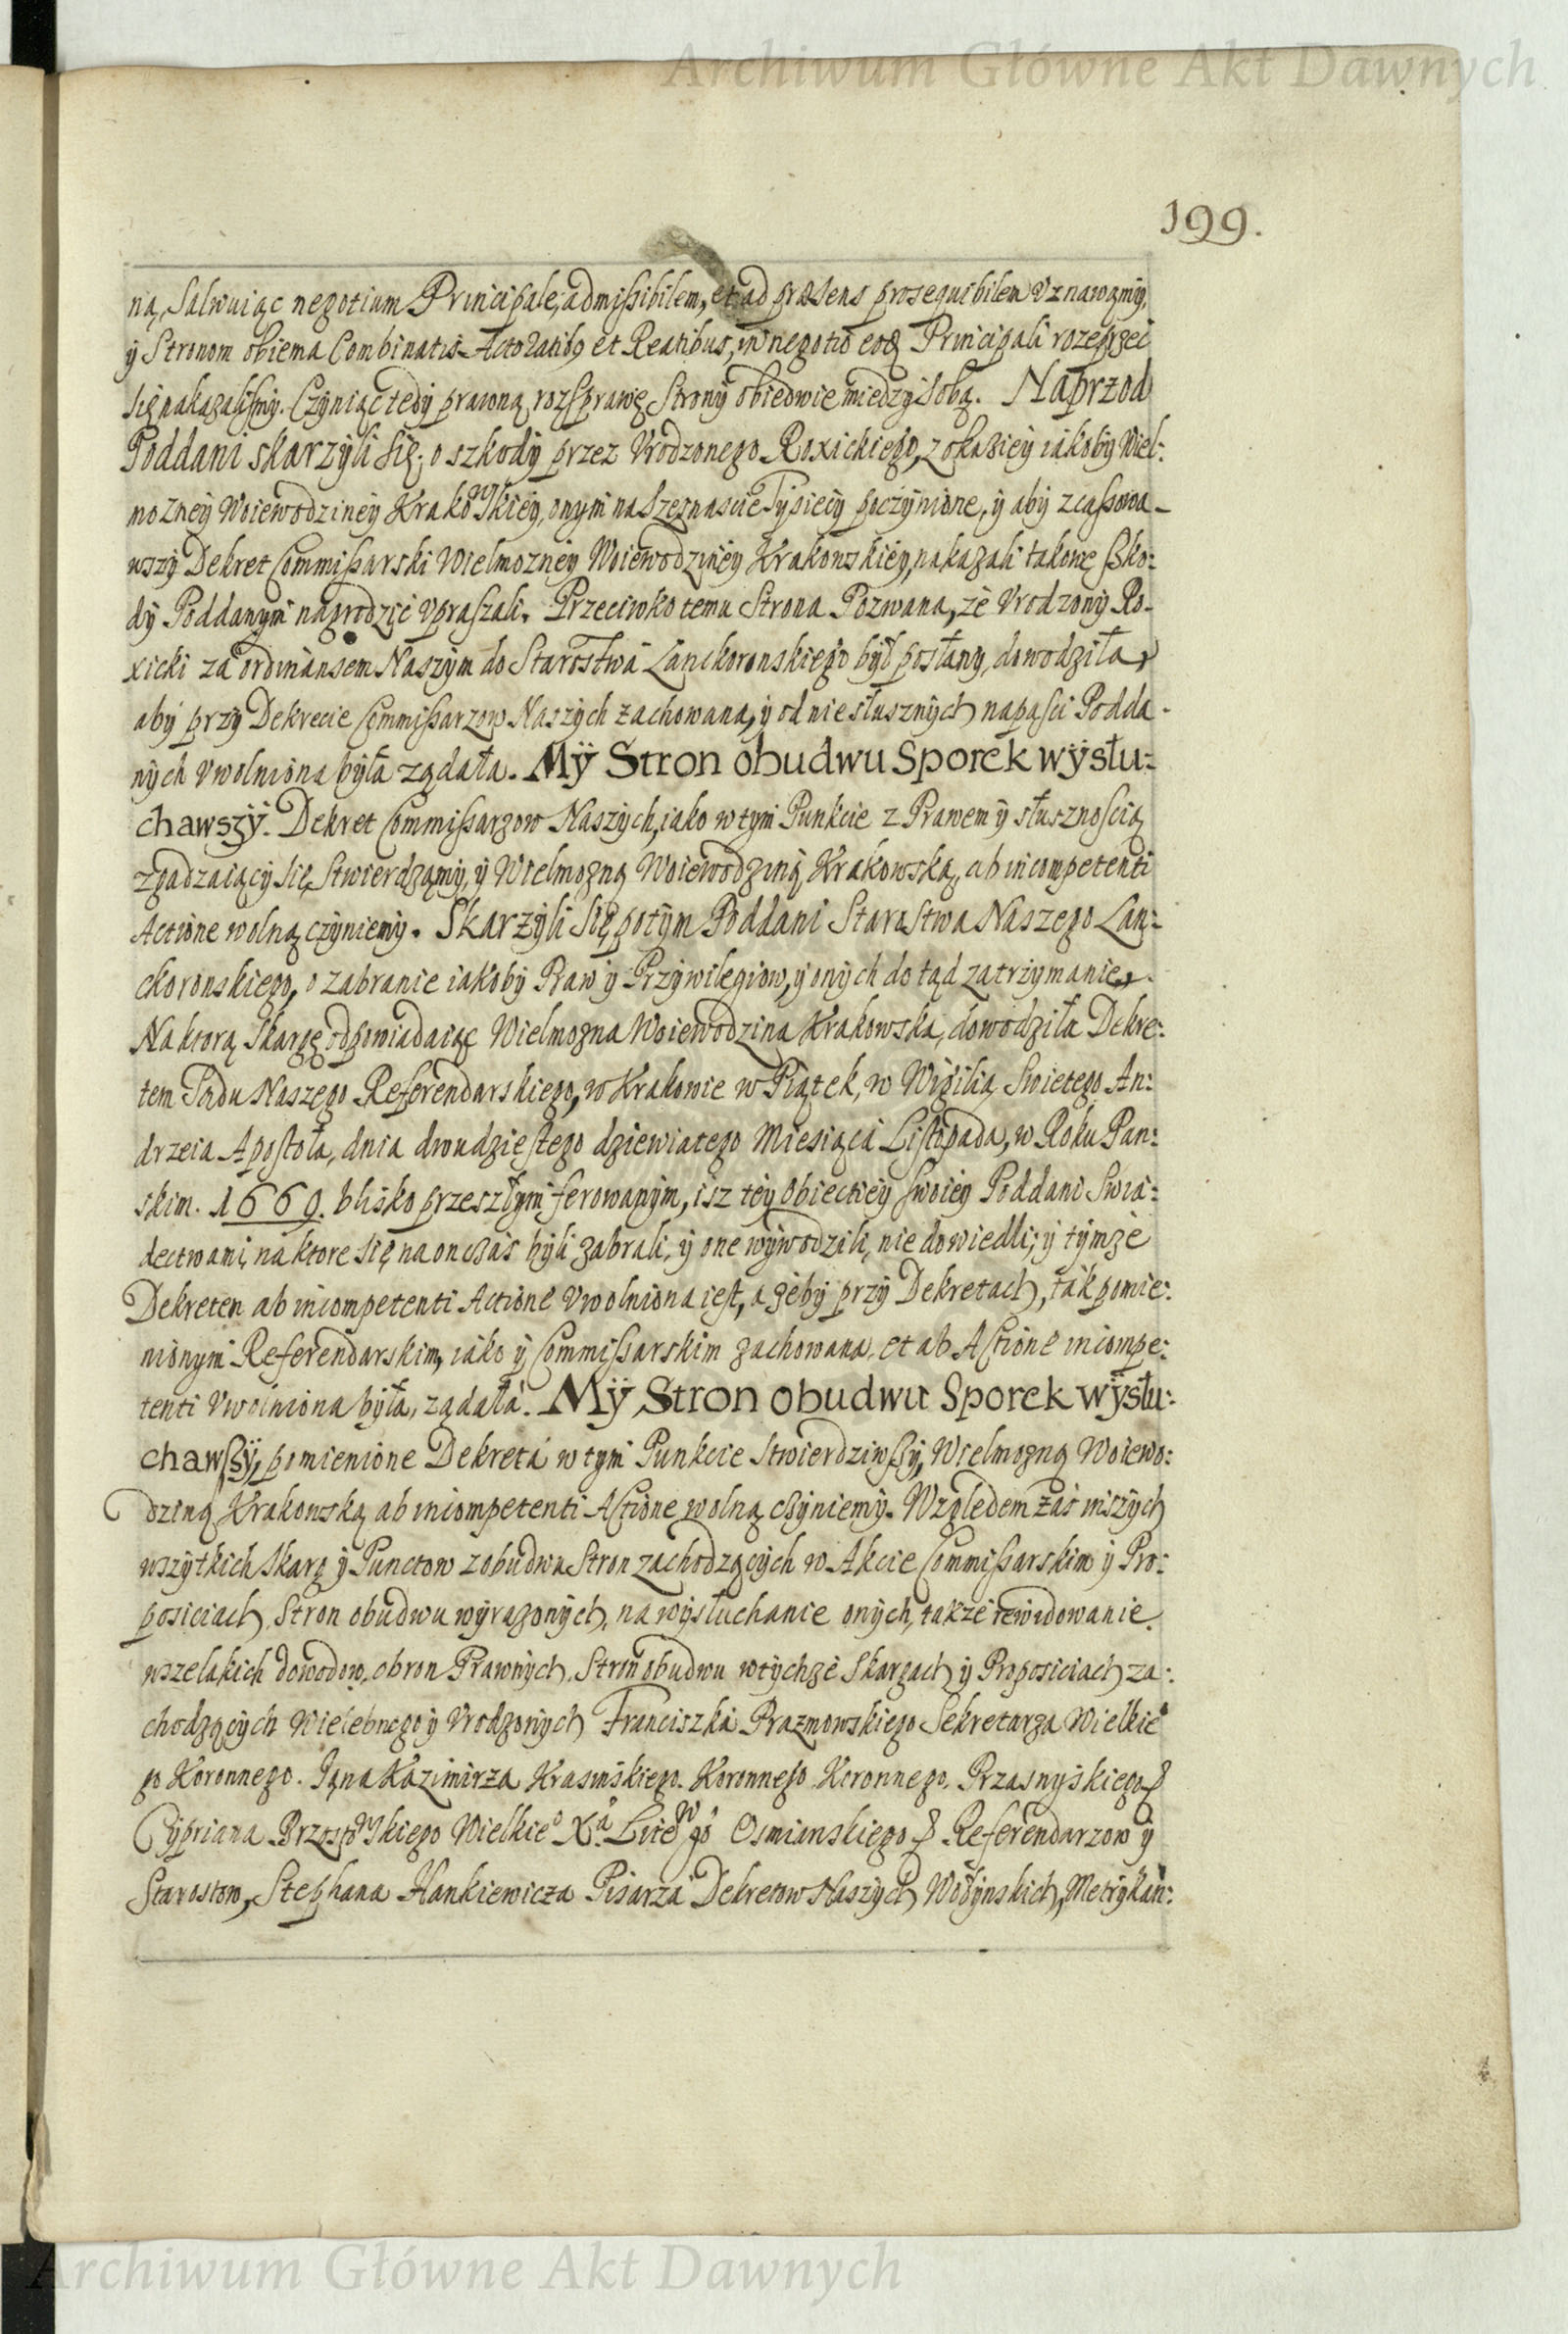 Archiwum Główne Akt Dawnych
199.
ną, Salwuiąc negotium Principale, admissibilem, et ad præsens prosequibilem Vznawamy,
ÿ Stronom obiema Combinatis Actoratibg et Reatibus, in negotio eoq Principali rozeprzeć
się nakazalismy. Czyniąc tedÿ prawną rozsprawę Stronÿ obiedwie miedzÿ sobą. Naprzod
Poddani skarzyli się, o szkodÿ przez Vrodzonego Roxickiego, z okazieÿ iakobÿ Wiel:
mozneÿ Woiewodzineÿ Krakowskieÿ, onym na Szesnascie Tysiecÿ poczÿnione, ÿ abÿ zcassowa-
wszÿ Dekret Commissarski Wielmozneÿ Woiewodzineÿ Krakowskieÿ, nakazali takowe szko:
dÿ Poddanym nagrodzić vpraszali. Przeciwko temu Strona Pozwana, że Vrodzonÿ Ro-
xicki za ordinansem Naszym do Starostwa Lanckoronskiego był posłany, dowodziła,
abÿ przÿ Dekrecie Commissarzow Naszych zachowana, ÿ od niesłusznych napasci Podda-
nÿch vwolniona bÿła ządała. Mÿ Stron obudwu Sporek wÿsłu:
chawszÿ. Dekret Commissarzow Naszych, iako w tym Punkcie z Prawem ÿ słusznoscią
zgadzaiącÿ się, Stwierdzamÿ, ÿ Wielmozną Woiewodziną Krakowską, ab incompetenti
Actione wolną czÿniemÿ. Skarżÿli się potÿm Poddani Starostwa Naszego Lan:
ckoronskiego, o zabranie iakobÿ Praw ÿ Przÿwilegiow, ÿ onÿch do tąd zatrzÿmanie,
Na ktorą skargę odpowiadaiąc Wielmozna Woiewodzina Krakowska, dowodziła Dekre:
tem Sądu Naszego Referendarskiego, w Krakowie w Piątek, w Wigilią Swietego An:
drzeia Apostoła, dnia dwudziestego dziewiatego Miesiąca Listopada, w Roku Pan:
skim. 1669. blisko przeszłÿm ferowanÿm, isz teÿ Obiectieÿ swoieÿ Poddani Swia:
dectwami, na ktore się na on czas bÿli zabrali, ÿ one wÿwodzili, nie dowiedli; ÿ tÿmże
Dekretem ab incompetenti Actione Vwolniona iest, a żebÿ przÿ Dekretach, tak pomie:
nionym Referendarskim, iako ÿ Commissarskim zachowana, et ab Actione incompe:
tenti Vwolniona bÿła, ządała. Mÿ Stron obudwu Sporek wÿsłu:
chawszÿ, pomienione Dekreta w tym Punkcie Stwierdziwszÿ, Wielmozną Woiewo:
dziną Krakowską ab incompetenti Actione wolną czÿniemÿ. Względem zaś inszÿch
wszÿtkich skarg ÿ Punctow z obudwu Stron zachodzącÿch w Akcie Commissarskim ÿ Pro:
posiciach, Stron obudwu wÿrazonÿch, na wÿsłuchanie onÿch, także rewidowanie
wszelakich dowodow, obron Prawnÿch, Stron obudwu w tÿchże Skargach ÿ Proposiciach za:
chodzącÿch Wielebnego ÿ Vrodzonÿch Franciszka Prazmowskiego Sekretarza Wielkie
go Koronnego. Jana Kazimirza Krasinskiego. Koronnego Koronnego. Przasnyskiego
Cÿpriana Brzostowskiego Wielkieo Xa Litewgo Osmianskiego Referendarzow ÿ
Starostow, Stephana Hankiewicza Pisarza Dekretow Naszÿch Wołÿnskich, Metrÿkan:
Archiwum Główne Akt Dawnych